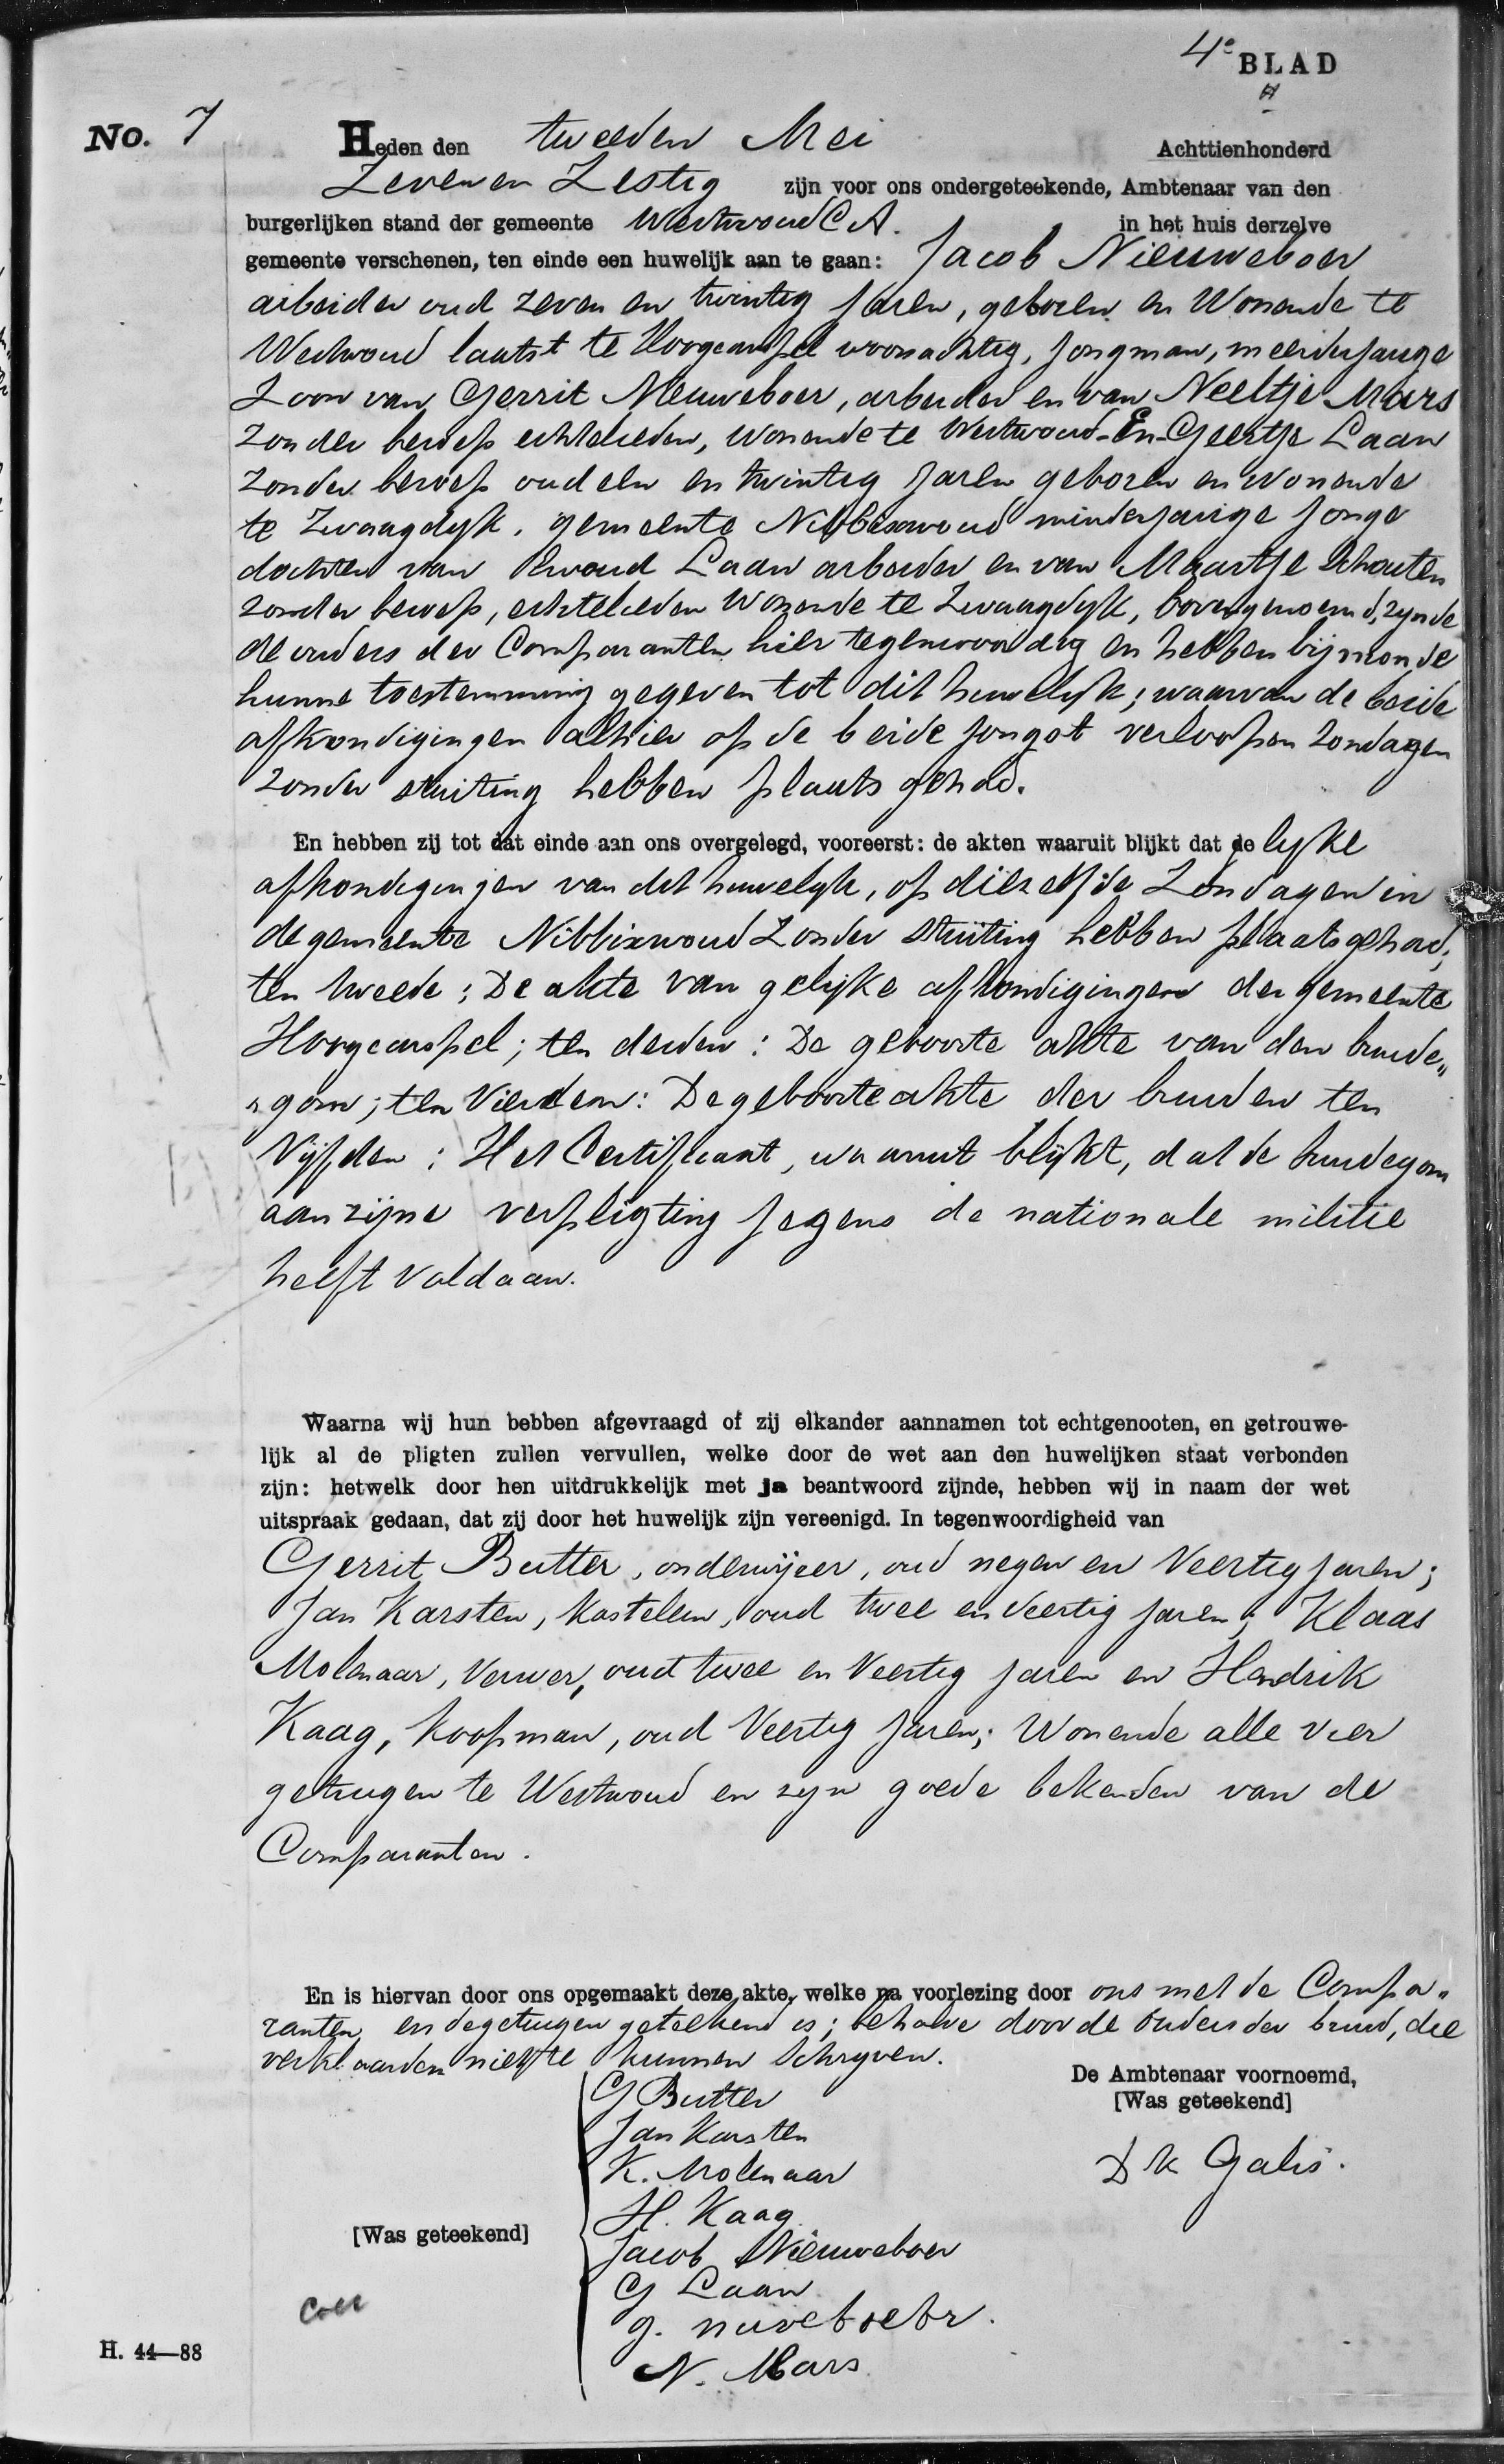 4e BLAD
No. 7
Heden den tweeden Mei Achttienhonderd
Zeven en Zestig zijn voor ons ondergeteekende, Ambtenaar van den
burgerlijken stand der gemeente Westwoud C A. in het huis derzelve
gemeente verschenen, ten einde een huwelijk aan te gaan: Jacob Nieuweboer
arbeider oud zeven en twintig jaren, geboren en Wonende te
Westwoud laatst te Hoogcarspel woonachtig, jongman, meerderjarige
Zoon van Gerrit Nieuweboer, arbeider en van Neeltje Mars
zonder beroep echtelieden, wonende te Westwoud - En - Geertje Laan
zonder beroep oud een en twintig jaren geboren en wonende
te Zwaagdijk, gemeente Nibbixwoud minderjarige jonge
dochter van Ewoud Laan arbeider en van Maartje Schouten
zonder beroep, echtelieden Wonende te Zwaagdijk, bovengenoemd, zijnde
de ouders der Comparanten hier tegenwoordig en hebben bij monde
hunne toestemming gegeven tot dit huwelijk; waarvan de beide
afkondigingen alhier op de beide jongst verloopen Zondagen
zonder stuiting hebben plaats gehad.
En hebben zij tot dat einde aan ons overgelegd, vooreerst: de akten waaruit blijkt dat gelyke
afkondigingen van dit huwelijk, op diezelfde Zondagen in
de gemeente Nibbixwoud Zonder stuiting hebben plaats gehad;
ten tweede: De akte van gelijke afkondigingen der gemeente
Hoogcarspel; ten derden: De geboorte akte van den bruide„
„gom; ten Vierden: De geboorte akte der bruid en ten
Vijfden: Het Certificaat, waaruit blijkt, dat de bruidegom
aan zijne verpligting jegens de nationale militie
heeft voldaan.
Waarna wij hun bebben afgevraagd of zij elkander aannamen tot echtgenooten, en getrouwe-
lijk al de pligten zullen vervullen, welke door de wet aan den huwelijken staat verbonden
zijn: hetwelk door hen uitdrukkelijk met ja beantwoord zijnde, hebben wij in naam der wet
uitspraak gedaan, dat zij door het huwelijk zijn vereenigd. In tegenwoordigheid van
Gerrit Butter, onderwijzer, oud negen en Veertig jaren;
Jan Karsten, kastelein, oud twee en Veertig jaren; Klaas
Molenaar, Verwer, oud twee en Veertig jaren en Hendrik
Kaag, koopman, oud Veertig jaren; Wonende alle vier
getuigen te Westwoud en zyn goede bekenden van de
Comparanten.
En is hiervan door ons opgemaakt deze akte, welke na voorlezing door ons met de Compa„
ranten en de getuigen geteekend is; behalve door de Ouders der bruid, die
verklaarden niet te kunnen Schryven.
De Ambtenaar voornoemd,
[Was geteekend]
D K Galis.
[Was geteekend]
G Butter
Jan Karsten
K. Molenaar
H. Kaag
Jacob Nieuweboer
G Laan
g. nieveboebr.
N. Mars
Coll
H. 44—88